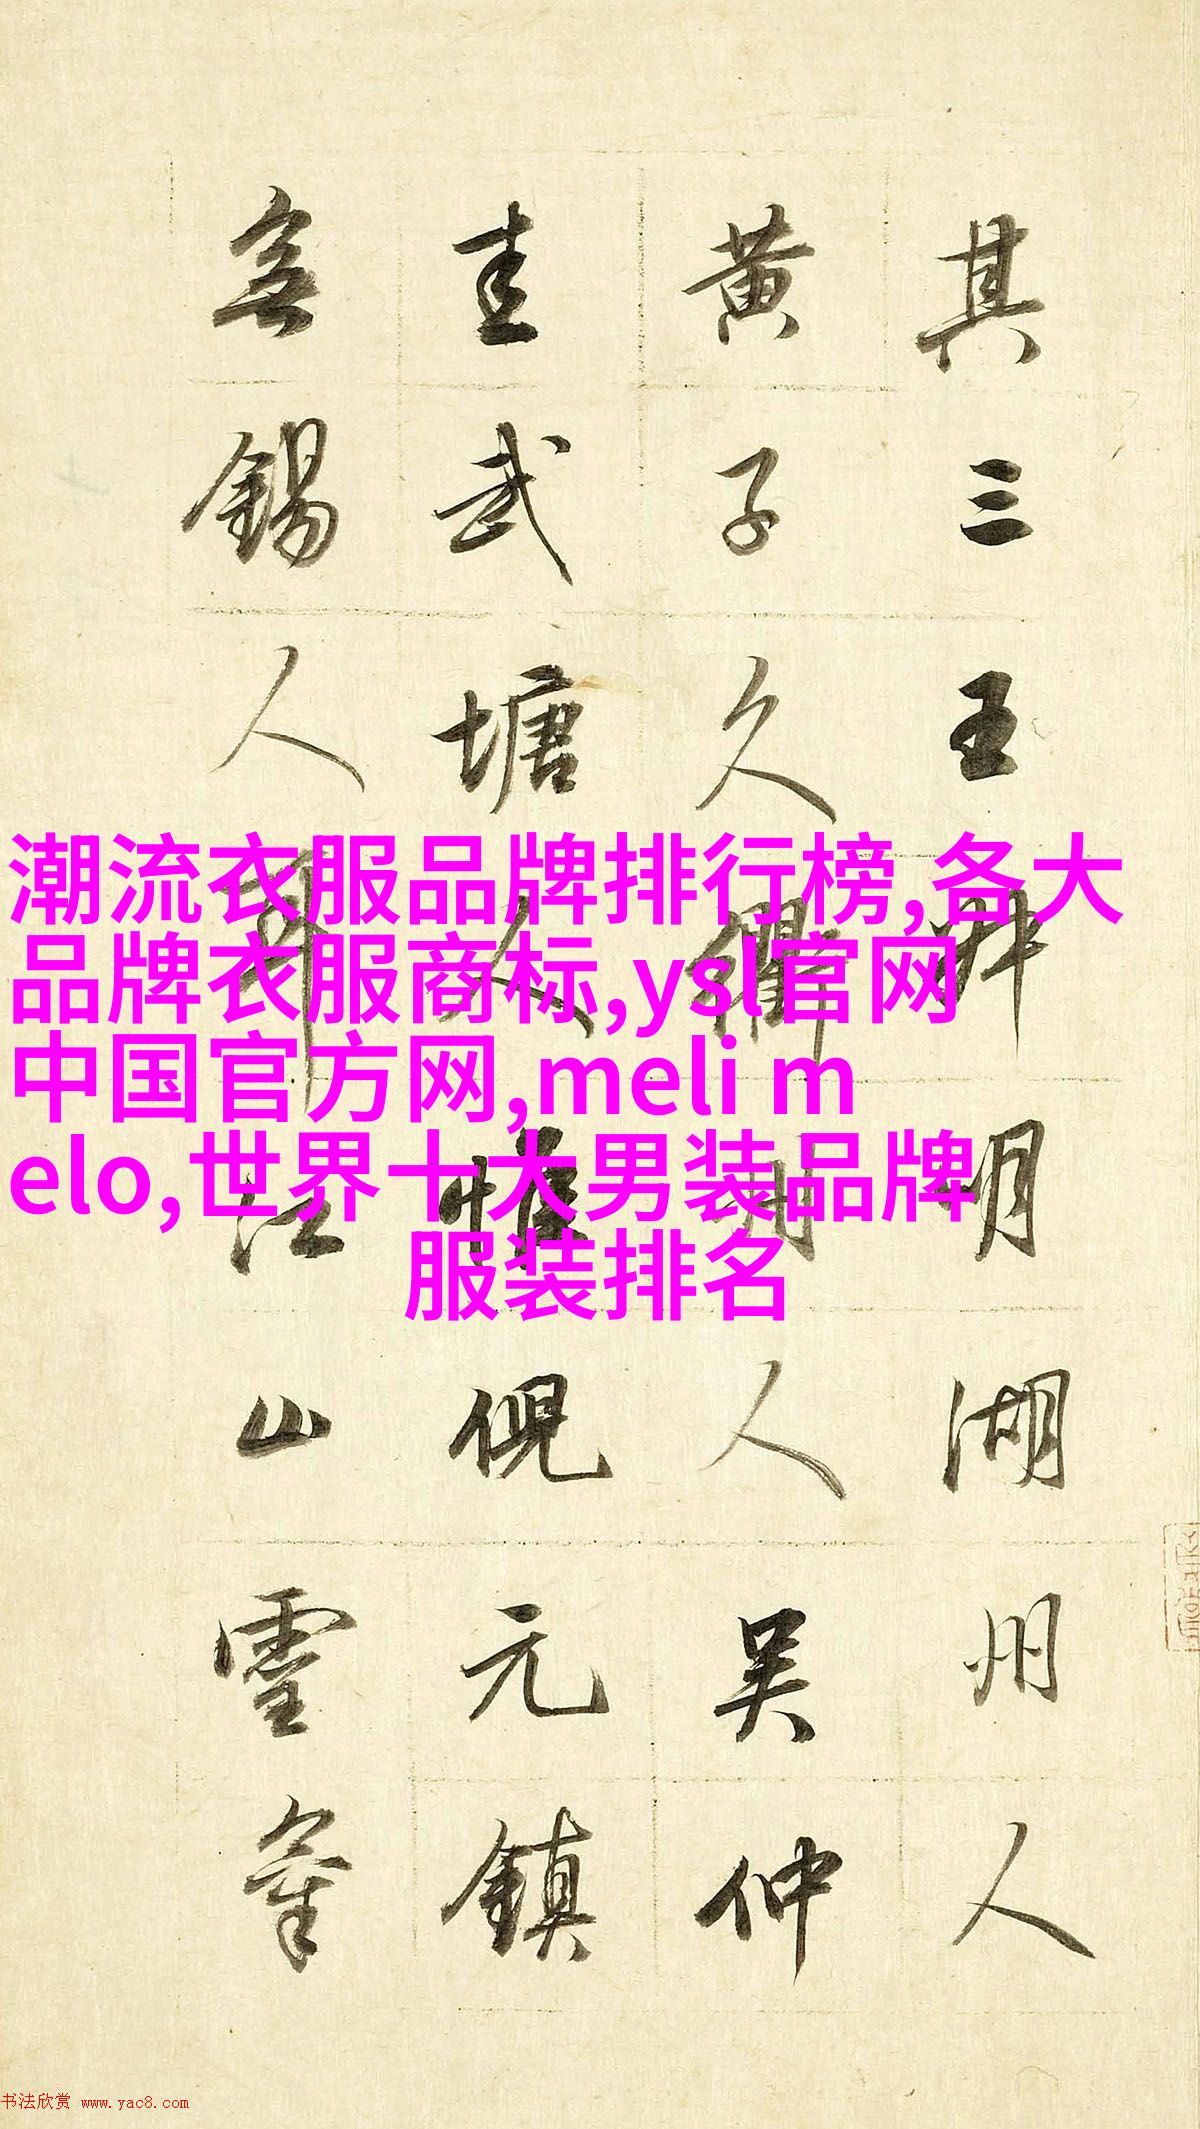 其三王叔明湖州人
黄子久衢州人吴仲
圭武塘人惟倪元鎮
無錫人耳江山靈氣
潮流衣服品牌排行榜,各大
品牌衣服商标,ysl官网
中国官方网,meli m
elo,世界十大男装品牌
服装排名
书法欣赏 www.yac8.com